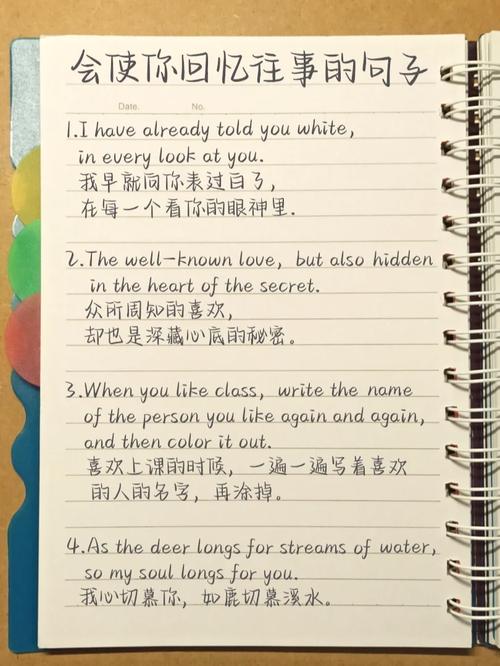 会使你回忆往事的句子
Date. No.
1.I have already told you white,
in every look at you.
我早就向你表过白了,
在每一个看你的眼神里.
2.The well-known love, but also hidden
in the heart of the secret.
众所周知的喜欢,
却也是深藏心底的秘密。
3.When you like class, write the name
of the person you like again and again,
and then color it out.
喜欢上课的时候, 一遍一遍写着喜欢
的人的名字, 再涂掉。
4.As the deer longs for streams of water,
so my soul longs for you.
我心切慕你, 如鹿切慕溪水。